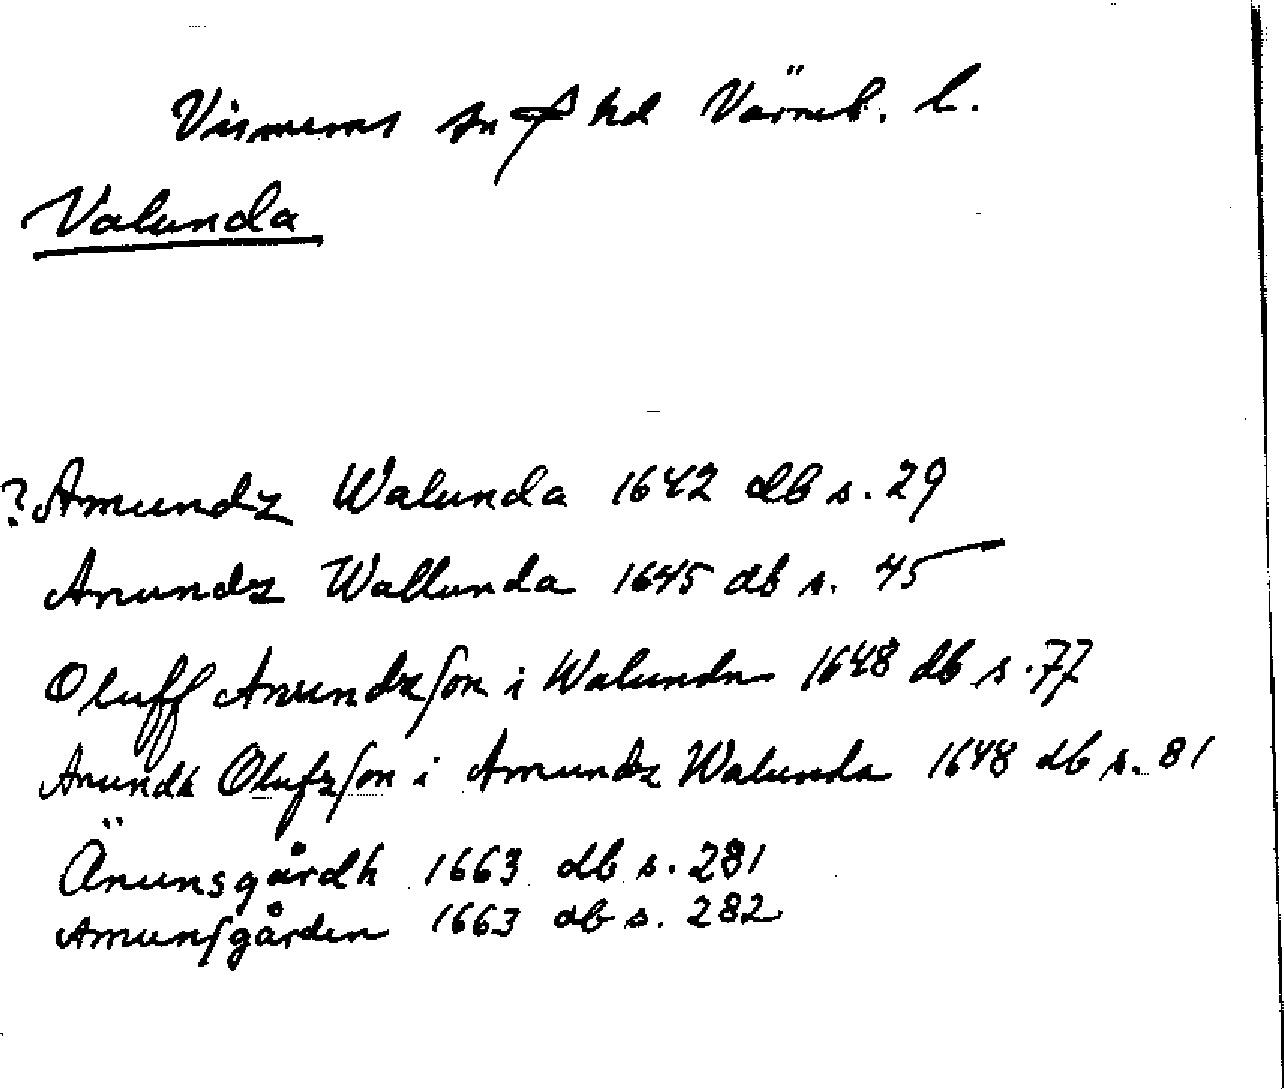 Visnums sn hd Värml. l.
Valunda
?Amundz Walunda 1642 db s. 29
Anundz Wallunda 1645 db s. 45
Oluff Anundzſon i Walunda 1648 db s. 77
Anundh Olufzſon i Amundz Walunda 1648 db s. 81
Änunsgårdh 1663 db s. 281
Amunſgården 1663 db s. 282